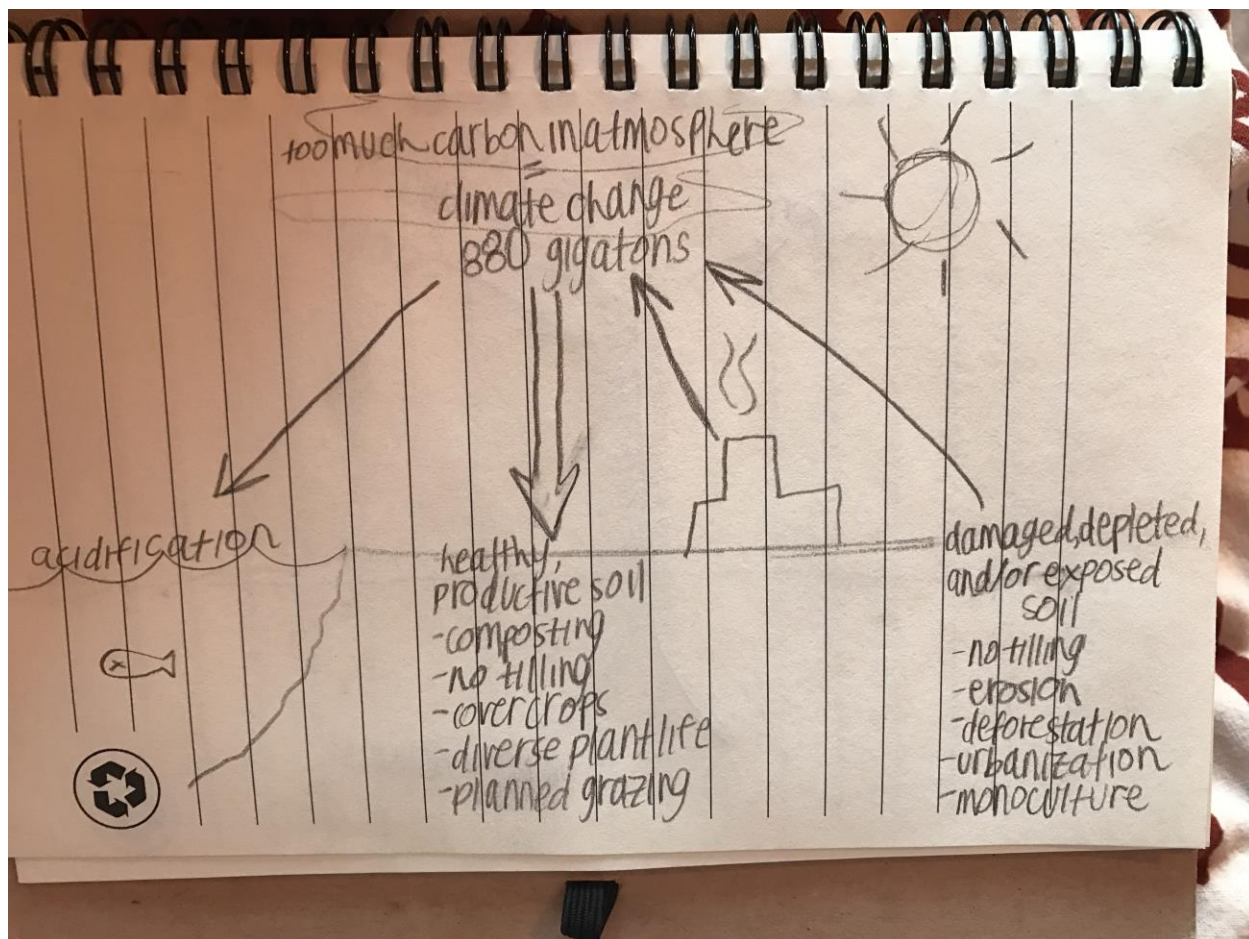 too much carbon in atmosphere
=
climate change
880 gigatons
acidification
healthy,
productive soil
-composting
-no tilling
-cover crops
-diverse plant life
-planned grazing
damaged, depleted,
and/or exposed
soil
-no tilling
-erosion
-deforestation
-urbanization
-monoculture